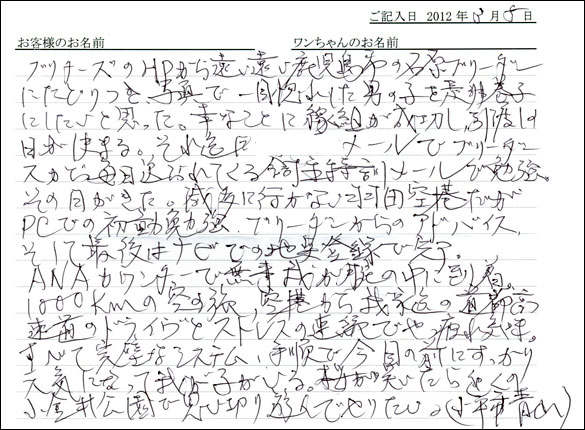 ご記入日 2012年3月5日
お客様のお名前 ワンちゃんのお名前
ブリーダーズのHPから遠い遠い鹿児島県の名ブリーダー
にたどりつき写真で一目惚れした男の子を是非養子
にしたいと思った。幸なことに縁組が成功し引渡し
日が決まる。それ迄 メールでブリーダー
さんが毎日送られてくる メールで勉強。
その日がきた。滅多に行かない羽田空港だが
PCでの初動勉強、ブリーダーからのアドバイス、
そして最後はナビでの地点登録で完了。
ANAカウンターで無事我が腕の中に到着。
1000Kmの空の旅、空港から我家迄の首都高
速道のドライヴとストレスの連続でや 疲れ気味。
すべて完璧なシステム、手順で今目の前にすっかり
元気になって我が子がいる。桜が咲いたら近くの
小金井公園で思い切り遊んでやりたい。(小平市青山)